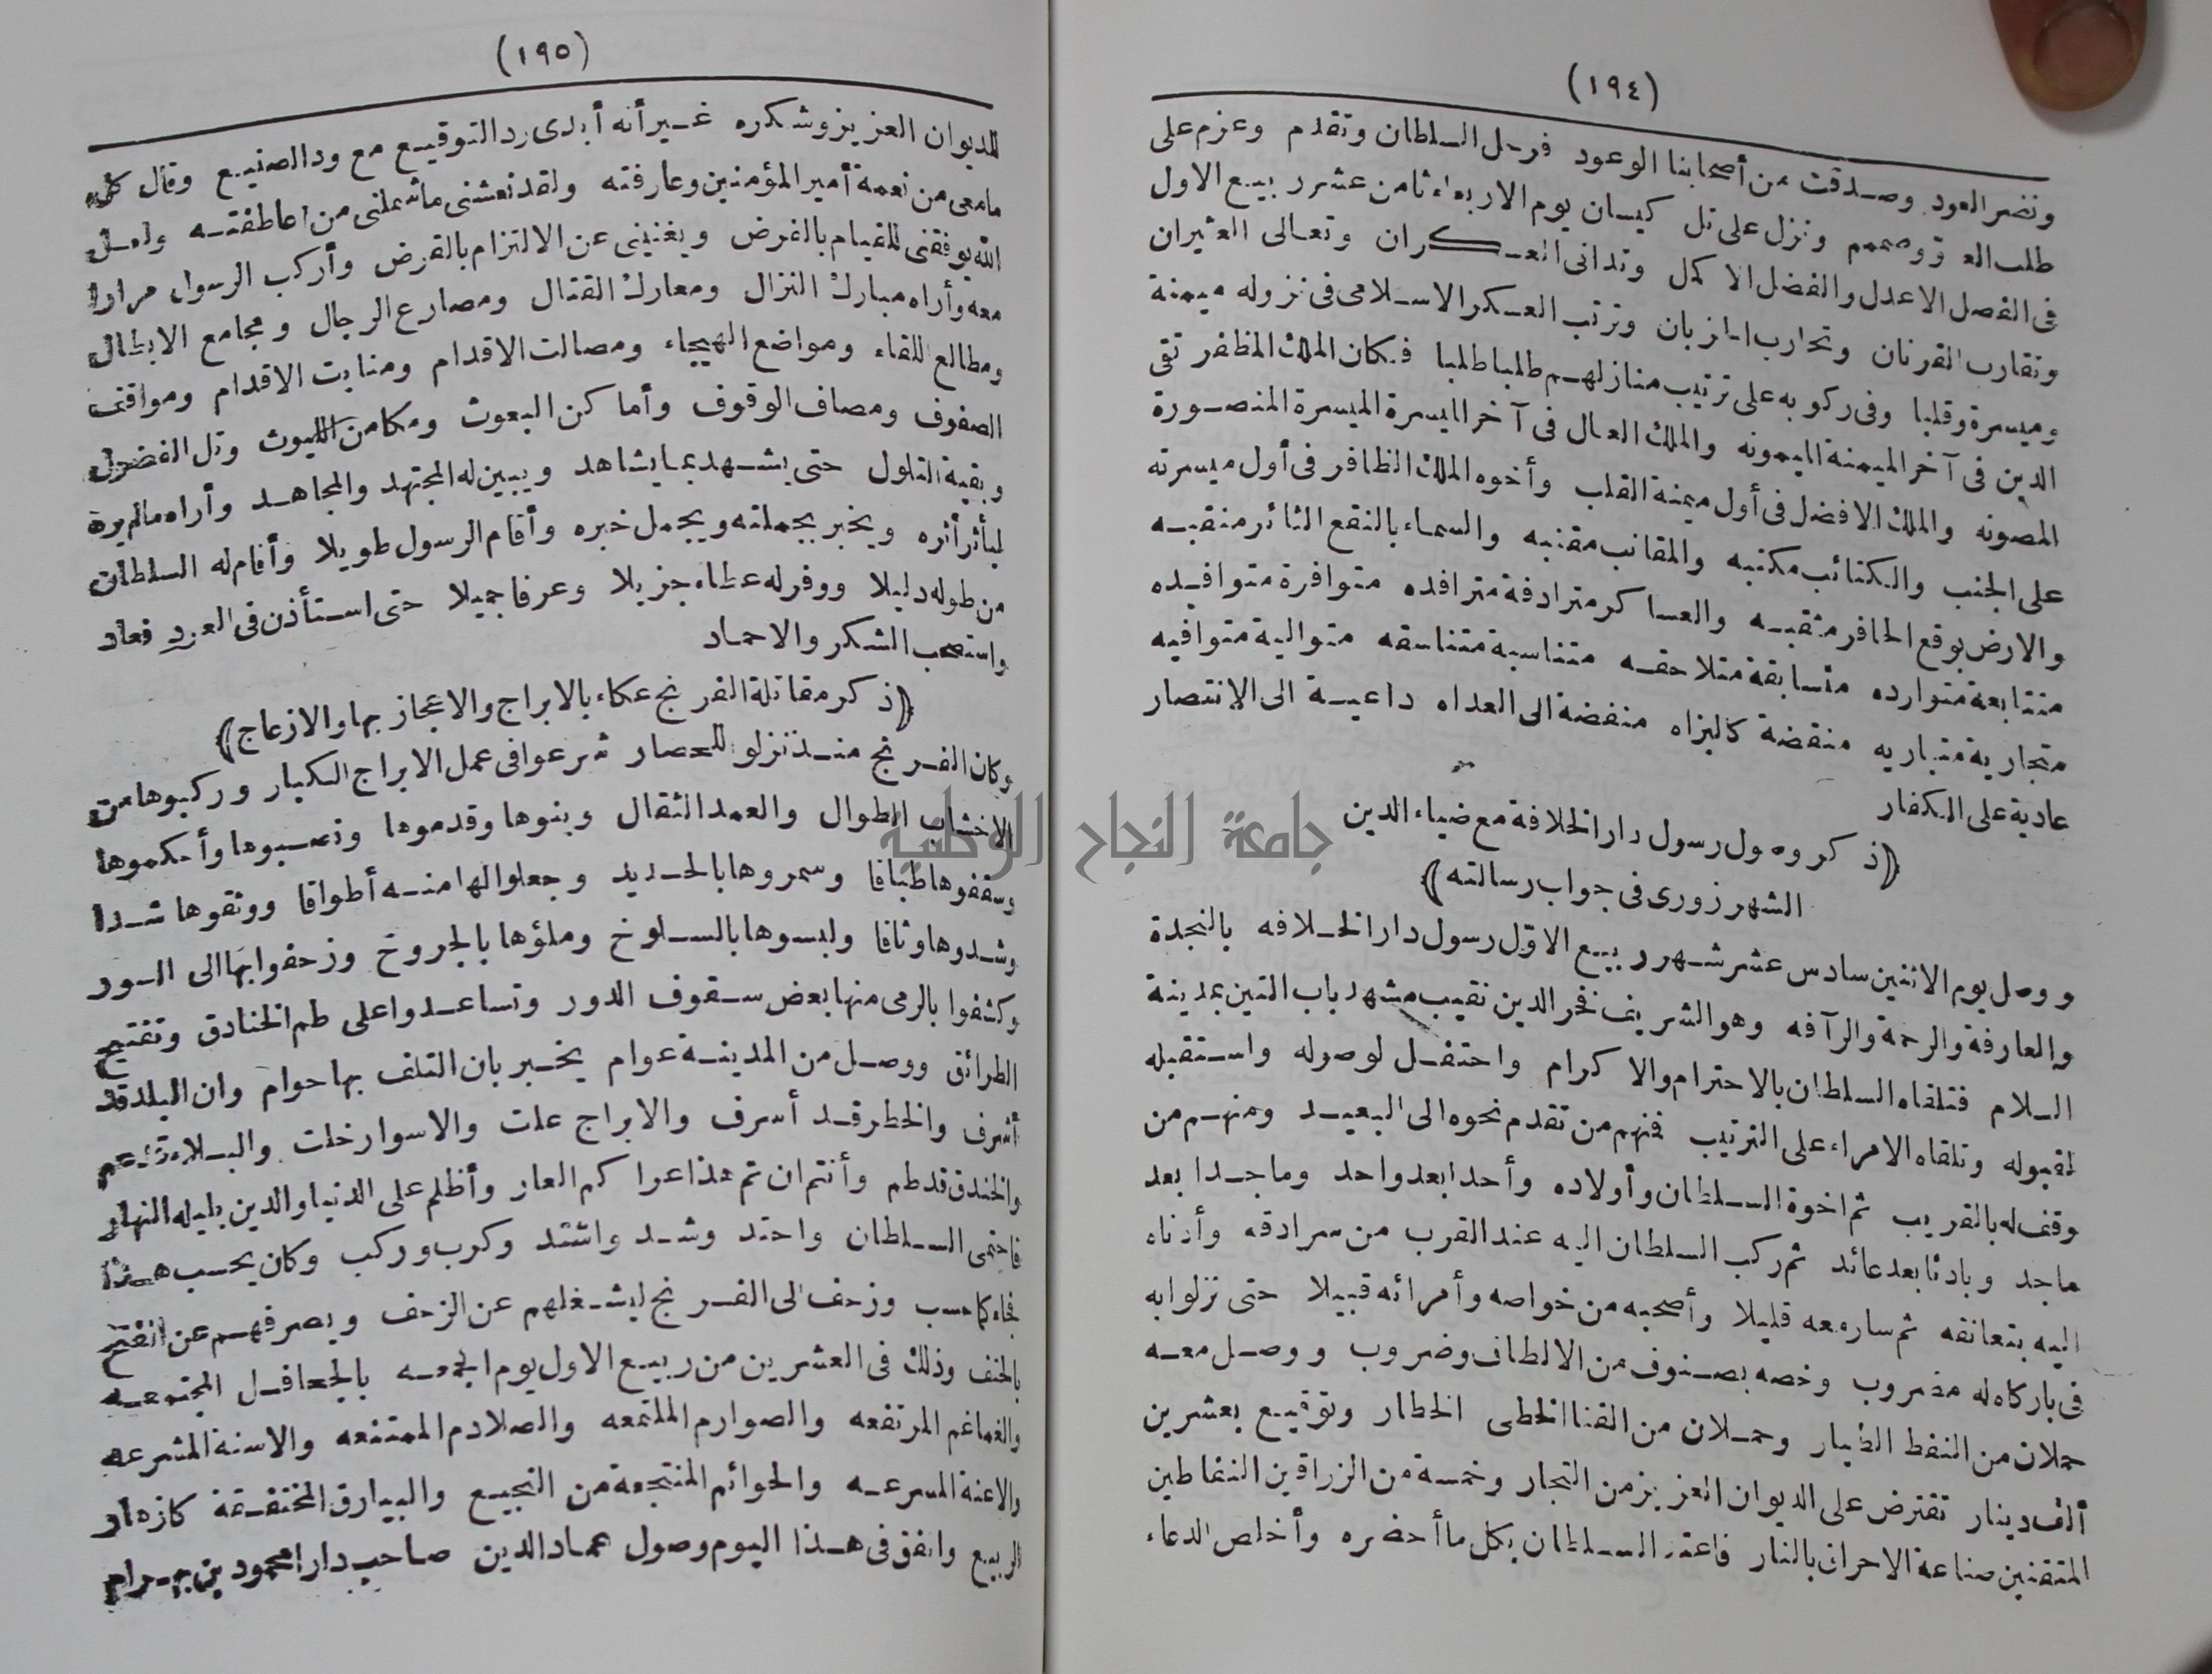 (١٩٤)
ونضر العود وصدقت من أصحابنا الوعود فرحل السلطان وتقدم وعزم على
طلب العدو وصمم ونزل على تل كيسان يوم الاربعاء ثامن عشر ربيع الاول
فى الفصل الاعدل والفضل الا كمل وتدانى العسكران وتعالى العثيران
وتقارب القرنان وتحارب الحزبان وترتب العسكر الاسلامى فى نزوله ميمنة
وميسرة وقلبا وفى ركوبه على ترتيب منازلهم طلبا طلبا فكان الملك المظفر تقى
الدين فى آخر الميمنة الميمونه والملك العادل فى آخر الميسرة الميسرة المنصورة
المصونه والملك الافضل فى أول ميمنة القلب وأخوه الملك الظافر فى أول ميسرته
على الجنب والكتائب مكتبه والمقانب مقنبه والسماء بالنقع الثائر منقبه
والارض بوقع الحافر مثقبه والعساكر مترادفة مترافده متوافرة متوافيده
متتابعة متوارده متسابقة متلاحقه متناسبة متناسقه متوالية متوافيه
متجارية متباريه منقضة كالبزاه منفضة الى العداه داعية الى الانتصار
عادية على الكفار
﴿ذكر وصول رسول دار الخلافة مع ضياء الدين
الشهرزورى فى جواب رسالته﴾
ووصل يوم الاثنين سادس عشر شهر ربيع الاوّل رسول دار الخلافه بالنجدة
والعارفة والرحمة والرآفه وهو الشريف فخر الدين نقيب مشهد باب التين بمدينة
السلام فتلقاه السلطان بالاحترام والاكرام واحتفل لوصوله واستقبله
لقبوله وتلقاه الامراء على الترتيب فمنهم من تقدم نحوه الى البعيد ومنهم من
وقف له بالقريب ثم اخوة السلطان وأولاده وأحدا بعد واحد وماجدا بعد
ماجد وبادئا بعد عائد ثم ركب السلطان اليه عند القرب من سرادقه وأدناه
اليه بتعانقه ثم سار معه قليلا وأصحبه من خواصه وأمرائه قبيلا حتى نزلوا به
فى باركاه له مضروب وخصه بصنوف من الالطاف وضروب ووصل معه
حملان من النفط الطيار وحملان من القنا الخطى الخطار وتوقيع بعشرين
ألف دينار تقترض على الديوان العزيز من التجار وخمسة من الزراقين النفاطين
المتقنين صناعة الاحراق بالنار فاعتد السلطان بكل ما أحضره وأخلص الدعاء
(١٩٥)
للديوان العزيز وشكره غير أنه أبدى رد التوقيع مع ود الصنيع وقال كل
مامعى من نعمة أمير المؤمنين وعارفته ولقد نعشنى ما شملنى من عاطفته ولعل
الله يوفقنى للقيام بالفرض ويغنينى عن الالتزام بالقرض وأركب الرسول مرارا
معه وأراه مبارك النزال ومعارك القتال ومصارع الرجال ومجامع الابطال
ومطالع اللقاء ومواضع الهيجاء ومصالت الاقدام ومنابت الاقدام ومواقف
الصفوف ومصاف الوقوف وأماكن البعوث ومكامن الليوث وتل الفضول
وبقية التلول حتى يشهد بما يشاهد ويبين له المجتهد والمجاهد وأراه مالم يره
ليأثر أثره ويخبر بجملته ويجمل خبره وأقام الرسول طويلا وأقام له السلطان
من طوله دليلا ووفر له عطاء جزيلا وعرفا جميلا حتى استأذن فى العود فعاد
واستصحب الشكر والاحماد
﴿ذكر مقاتلة الفرنج عكاء بالابراج والاعجاز بها والازعاج﴾
وكان الفرنج منذ نزلو اللحصار شرعوا فى عمل الابراج الكبار وركبوها من
الاخشاب الطوال والعمد الثقال وبنوها وقدموها ونصبوها وأحكموها
وسقفوها طباقا وسمروها بالحديد وجعلوا لها منه أطواقا ووثقوها شدا
وشدوها وثاقا ولبسوها بالسلوخ وملؤها بالجروخ وزحفوا بها الى السور
وكشفوا بالرمى منها بعض سقوف الدور وتساعدوا على طم الخنادق وتفتح
الطرائق ووصل من المدينة عوام يخبر بان التلف بها حوام وان البلد قد
أشرف والخطر قد أسرف والابراج علت والاسوار خلت والبلاء قد عم
والخندق قد طم وأنتم ان تم هذا عراكم العار وأظلم على الدنيا والدين بليله النهار
فاحتمى السلطان واحتد وشد واشتد وكرب وركب وكان يحسب هذا
فجاء كما حسب وزحف الى الفرنج ليشغلهم عن الزحف ويصرفهم عن الفتح
بالحتف وذلك فى العشرين من ربيع الاول يوم الجمعه بالجحافل المجتمعه
والغماغم المرتفعه والصوارم الملتمعه والصلادم الممتنعه والاسنة المشرعه
والاعنة المسرعه والحوائم المنتجعة من النجيع والبيارق المختفقة كازهار
الربيع واتفق فى هذا اليوم وصول عماد الدين صاحب دارا محمود بن بهرام
جامعة النجاح الوطنية